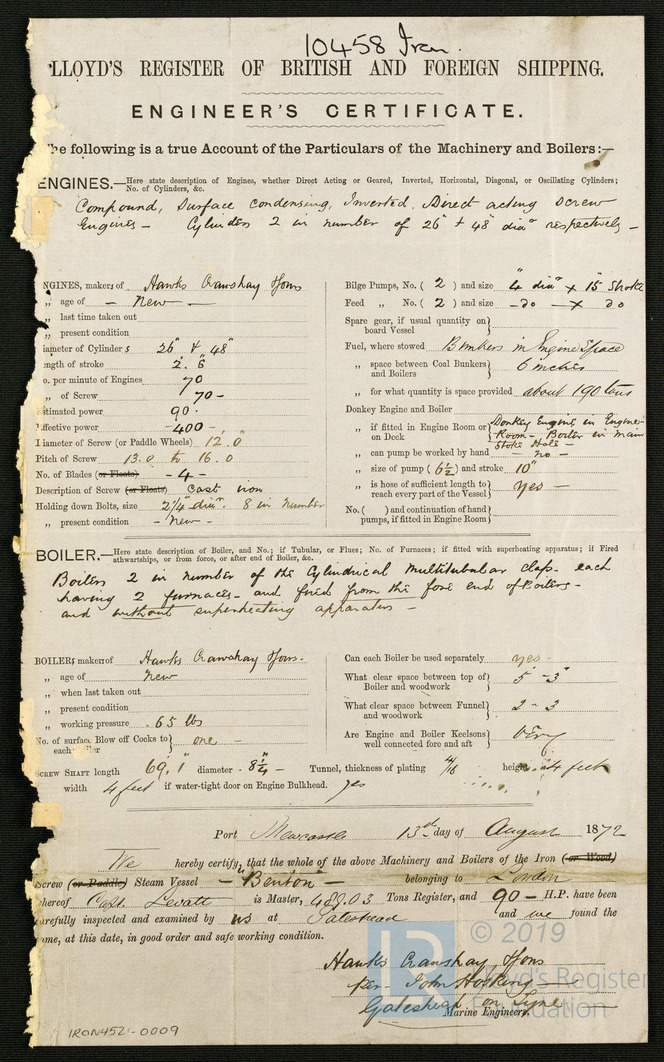 10458 Iron.
LLOYD'S REGISTER OF BRITISH AND FOREIGN SHIPPING.
ENGINEER'S CERTIFICATE.
he following is a true Account of the Particulars of the Machinery and Boilers:—
ENGINES.—Here state description of Engines, whether Direct Acting or Geared, Inverted, Horizontal, Diagonal, or Oscillating Cylinders;
No. of Cylinders, &c.
Compound, Surface condensing, Inverted, Direct acting Screw
Engines – Cylinders 2 in number of 26" + 48" diar respectively –
NGINES, makers of Hawks Crawshay & Sons
„ age of – New –
„ last time taken out
„ present condition
iameter of Cylinders 26" & 48"
ength of stroke 2. 6"
o. per minute of Engines 70
„ of Screw 70 –
stimated power 90.
ffective power – 400 –
Diameter of Screw (or Paddle Wheels) 12.0"
Pitch of Screw 13.0 to 16.0
No. of Blades (or Floats) – 4 –
Description of Screw (or Floats) Cast iron
Holding down Bolts, size 2¼" diar. 8 in number
„ present condition – New –
Bilge Pumps, No. ( 2 ) and size 4" diar x 15" Stroke
Feed „ No. ( 2 ) and size – do – x do
Spare gear, if usual quantity on
board Vessel
Fuel, where stowed Bunkers in Engine Space
„ space between Coal Bunkers
and Boilers 6 inches
„ for what quantity is space provided about 190 tons
Donkey Engine and Boiler
„ if fitted in Engine Room or
on Deck Donkey Engine in Engine
Room – Boiler in main
Stoke Hole –
„ can pump be worked by hand – no –
„ size of pump ( 6½ ) and stroke 10"
„ is hose of sufficient length to
reach every part of the Vessel yes –
No. ( ) and continuation of hand
pumps, if fitted in Engine Room
BOILER.—Here state description of Boiler, and No.; if Tubular, or Flues; No. of Furnaces; if fitted with superheating apparatus; if Fired
athwartships, or from force, or after end of Boiler, &c.
Boilers 2 in number of the Cylindrical Multitubular class. each
having 2 furnaces – and fired from the fore end of Boilers –
and without superheating apparatus –
BOILER; makers of Hawks Crawshay & Sons.
„ age of New
„ when last taken out
„ present condition
„ working pressure . 65 lbs
No. of surface Blow off Cocks to
each iler one –
Can each Boiler be used separately yes –
What clear space between top of
Boiler and woodwork 5 – 3"
What clear space between Funnel
and woodwork 2 – 3
Are Engine and Boiler Keelsons
well connected fore and aft Very
SCREW SHAFT length 69' 1" diameter . 8¼" – Tunnel, thickness of plating 4/16 height 4 feet
width 4 feet if water-tight door on Engine Bulkhead. yes
Port Newcastle 13th day of August 1872
We hereby certify, that the whole of the above Machinery and Boilers of the Iron (or Wood)
Screw (or Paddle) Steam Vessel – "Benton" – belonging to London
hereof Capt. Levatt is Master, 489.03 Tons Register, and 90 – H.P. have been
arefully inspected and examined by us at Gateshead and we found the
ame, at this date, in good order and safe working condition.
Hawks Crawshay & Sons
per John Hosking
Gateshead on Tyne
Marine Engineers.
© 2019
Lloyd's Register
Foundation
IRON4521-0009